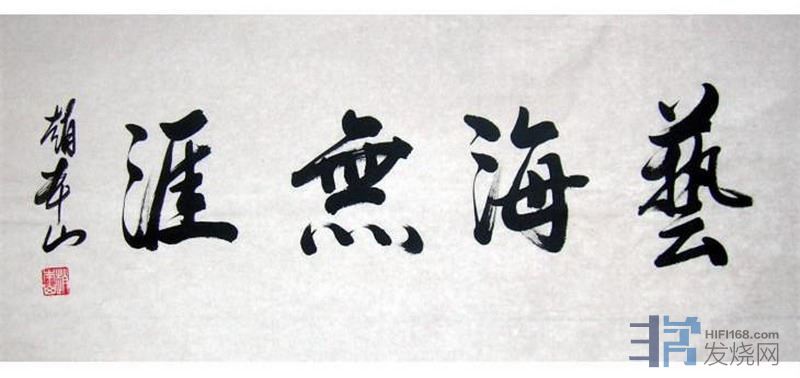 藝海無涯
趙本山
HIFI168.com
发烧网